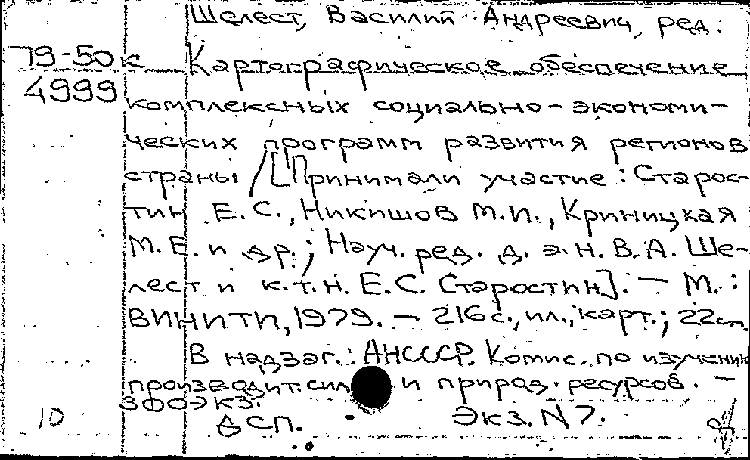 Шелест, Василий Андреевич, ред.
79-50к Картографическое обеспечение
4999 комплексных социально-экономи-
ческих программ развития регионов
страны / [Принимали участие: Старос-
тин Е.С., Никишов М.И., Криницкая
М.Е. и др.; Науч. ред. д.э.н. В.А. Ше-
лест и к.т.н. Е.С. Старостин]. — М.:
ВИНИТИ, 1979. — 216 с., ил., карт.; 22 см.
В надзаг.: АН СССР. Комис. по изучению
производит. сил и природ. ресурсов. —
390 экз.
10 ДСП. Экз. N 7.